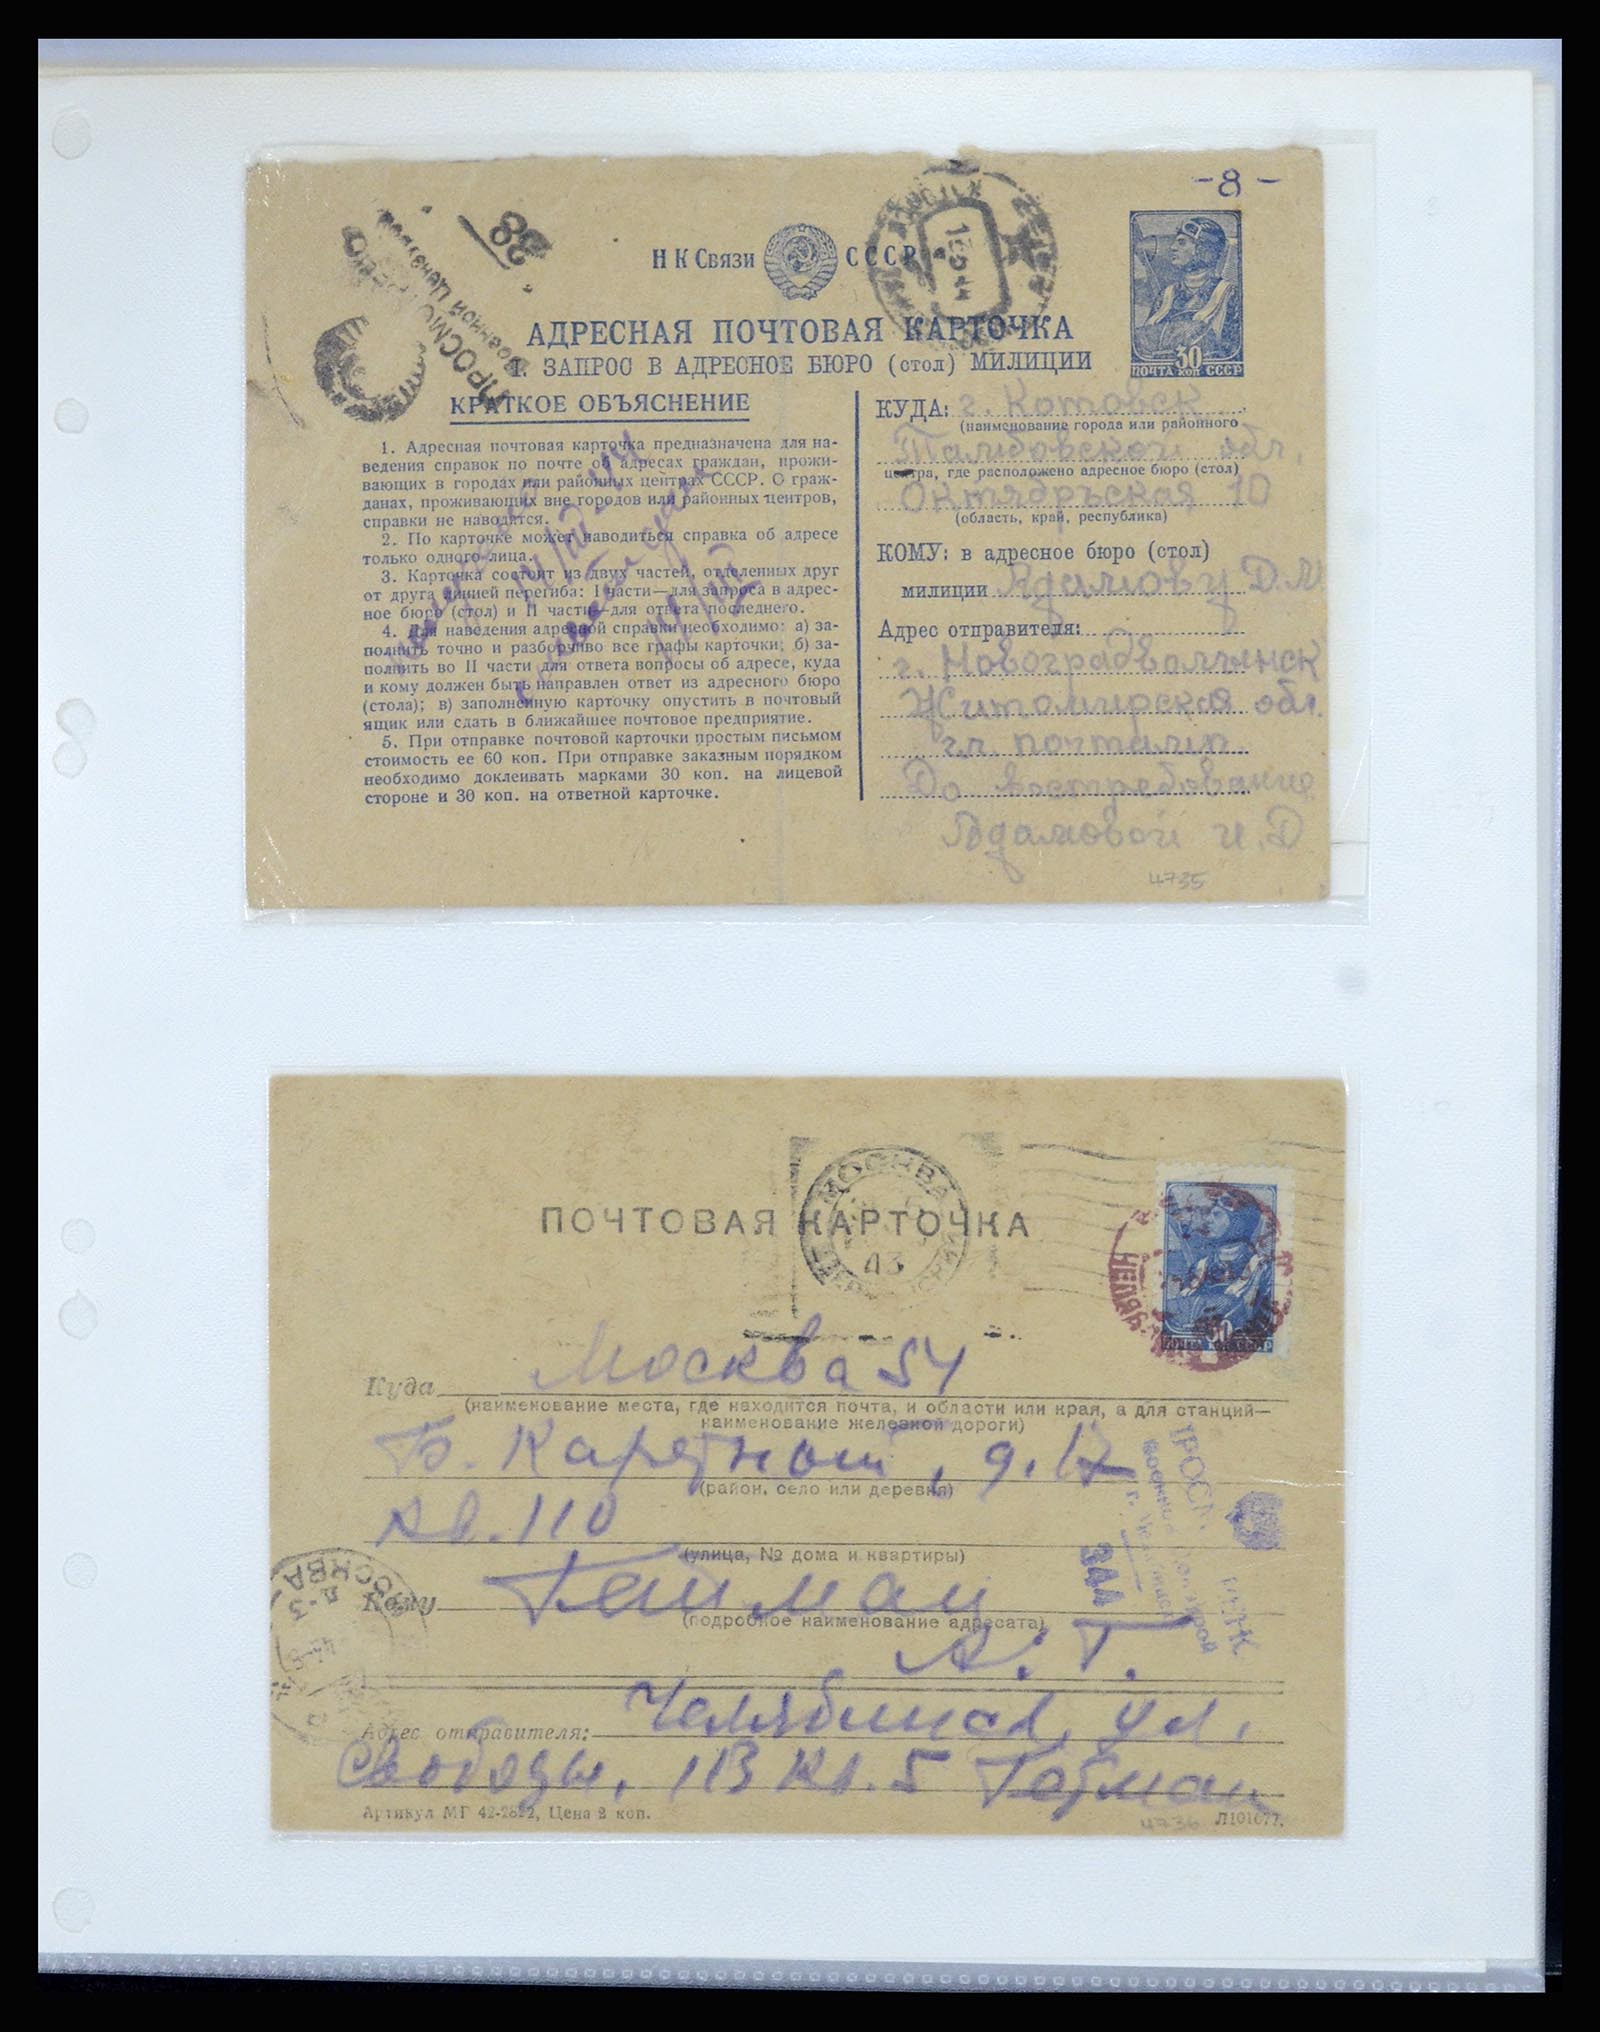 -8-
88
ПРОСМОТРЕНО
Военной Цензурой
Н К Связи СССР
АДРЕСНАЯ ПОЧТОВАЯ КАРТОЧКА
1. ЗАПРОС В АДРЕСНОЕ БЮРО (стол) МИЛИЦИИ
30
ПОЧТА КОП СССР
КРАТКОЕ ОБЪЯСНЕНИЕ
1. Адресная почтовая карточка предназначена для на-
ведения справок по почте об адресах граждан, прожи-
вающих в городах или районных центрах СССР. О граж-
данах, проживающих вне городов или районных центров,
справки не наводятся.
2. По карточке может наводиться справка об адресе
только одного лица.
3. Карточка состоит из двух частей, отделенных друг
от друга линией перегиба: I части—для запроса в адрес-
ное бюро (стол) и II части—для ответа последнего.
4. Для наведения адресной справки необходимо: а) за-
полнить точно и разборчиво все графы карточки; б) за-
полнить во II части для ответа вопросы об адресе, куда
и кому должен быть направлен ответ из адресного бюро
(стола); в) заполненную карточку опустить в почтовый
ящик или сдать в ближайшее почтовое предприятие.
5. При отправке почтовой карточки простым письмом
стоимость ее 60 коп. При отправке заказным порядком
необходимо доклеивать марками 30 коп. на лицевой
стороне и 30 коп. на ответной карточке.
КУДА: г. Котовск
(наименование города или районного
Тамбовской обл.
центра, где расположено адресное бюро (стол)
Октябрьская 10
(область, край, республика)
КОМУ: в адресное бюро (стол)
милиции Адамову Д.М.
Адрес отправителя:
г. Новоградволынск
Житомирская обл.
гл. почтамп
До востребование
Адамовой И.Д
4735
МОСКВА
43
ПОЧТОВАЯ КАРТОЧКА
30
ПОЧТА КОП СССР
Куда Москва 54
(наименование места, где находится почта, и области или края, а для станций—
наименование железной дороги)
Б. Каретный, д. 17
(район, село или деревня)
кв. 110
(улица, № дома и квартиры)
Кому Гетман
(подробное наименование адресата)
А. Г.
344
МОСКВА
Адрес отправителя: Челябинск, ул.
Свободы, 113 кв. 5 Гетман
Артикул МГ 42-2822, Цена 2 коп.
4736
Л101677.